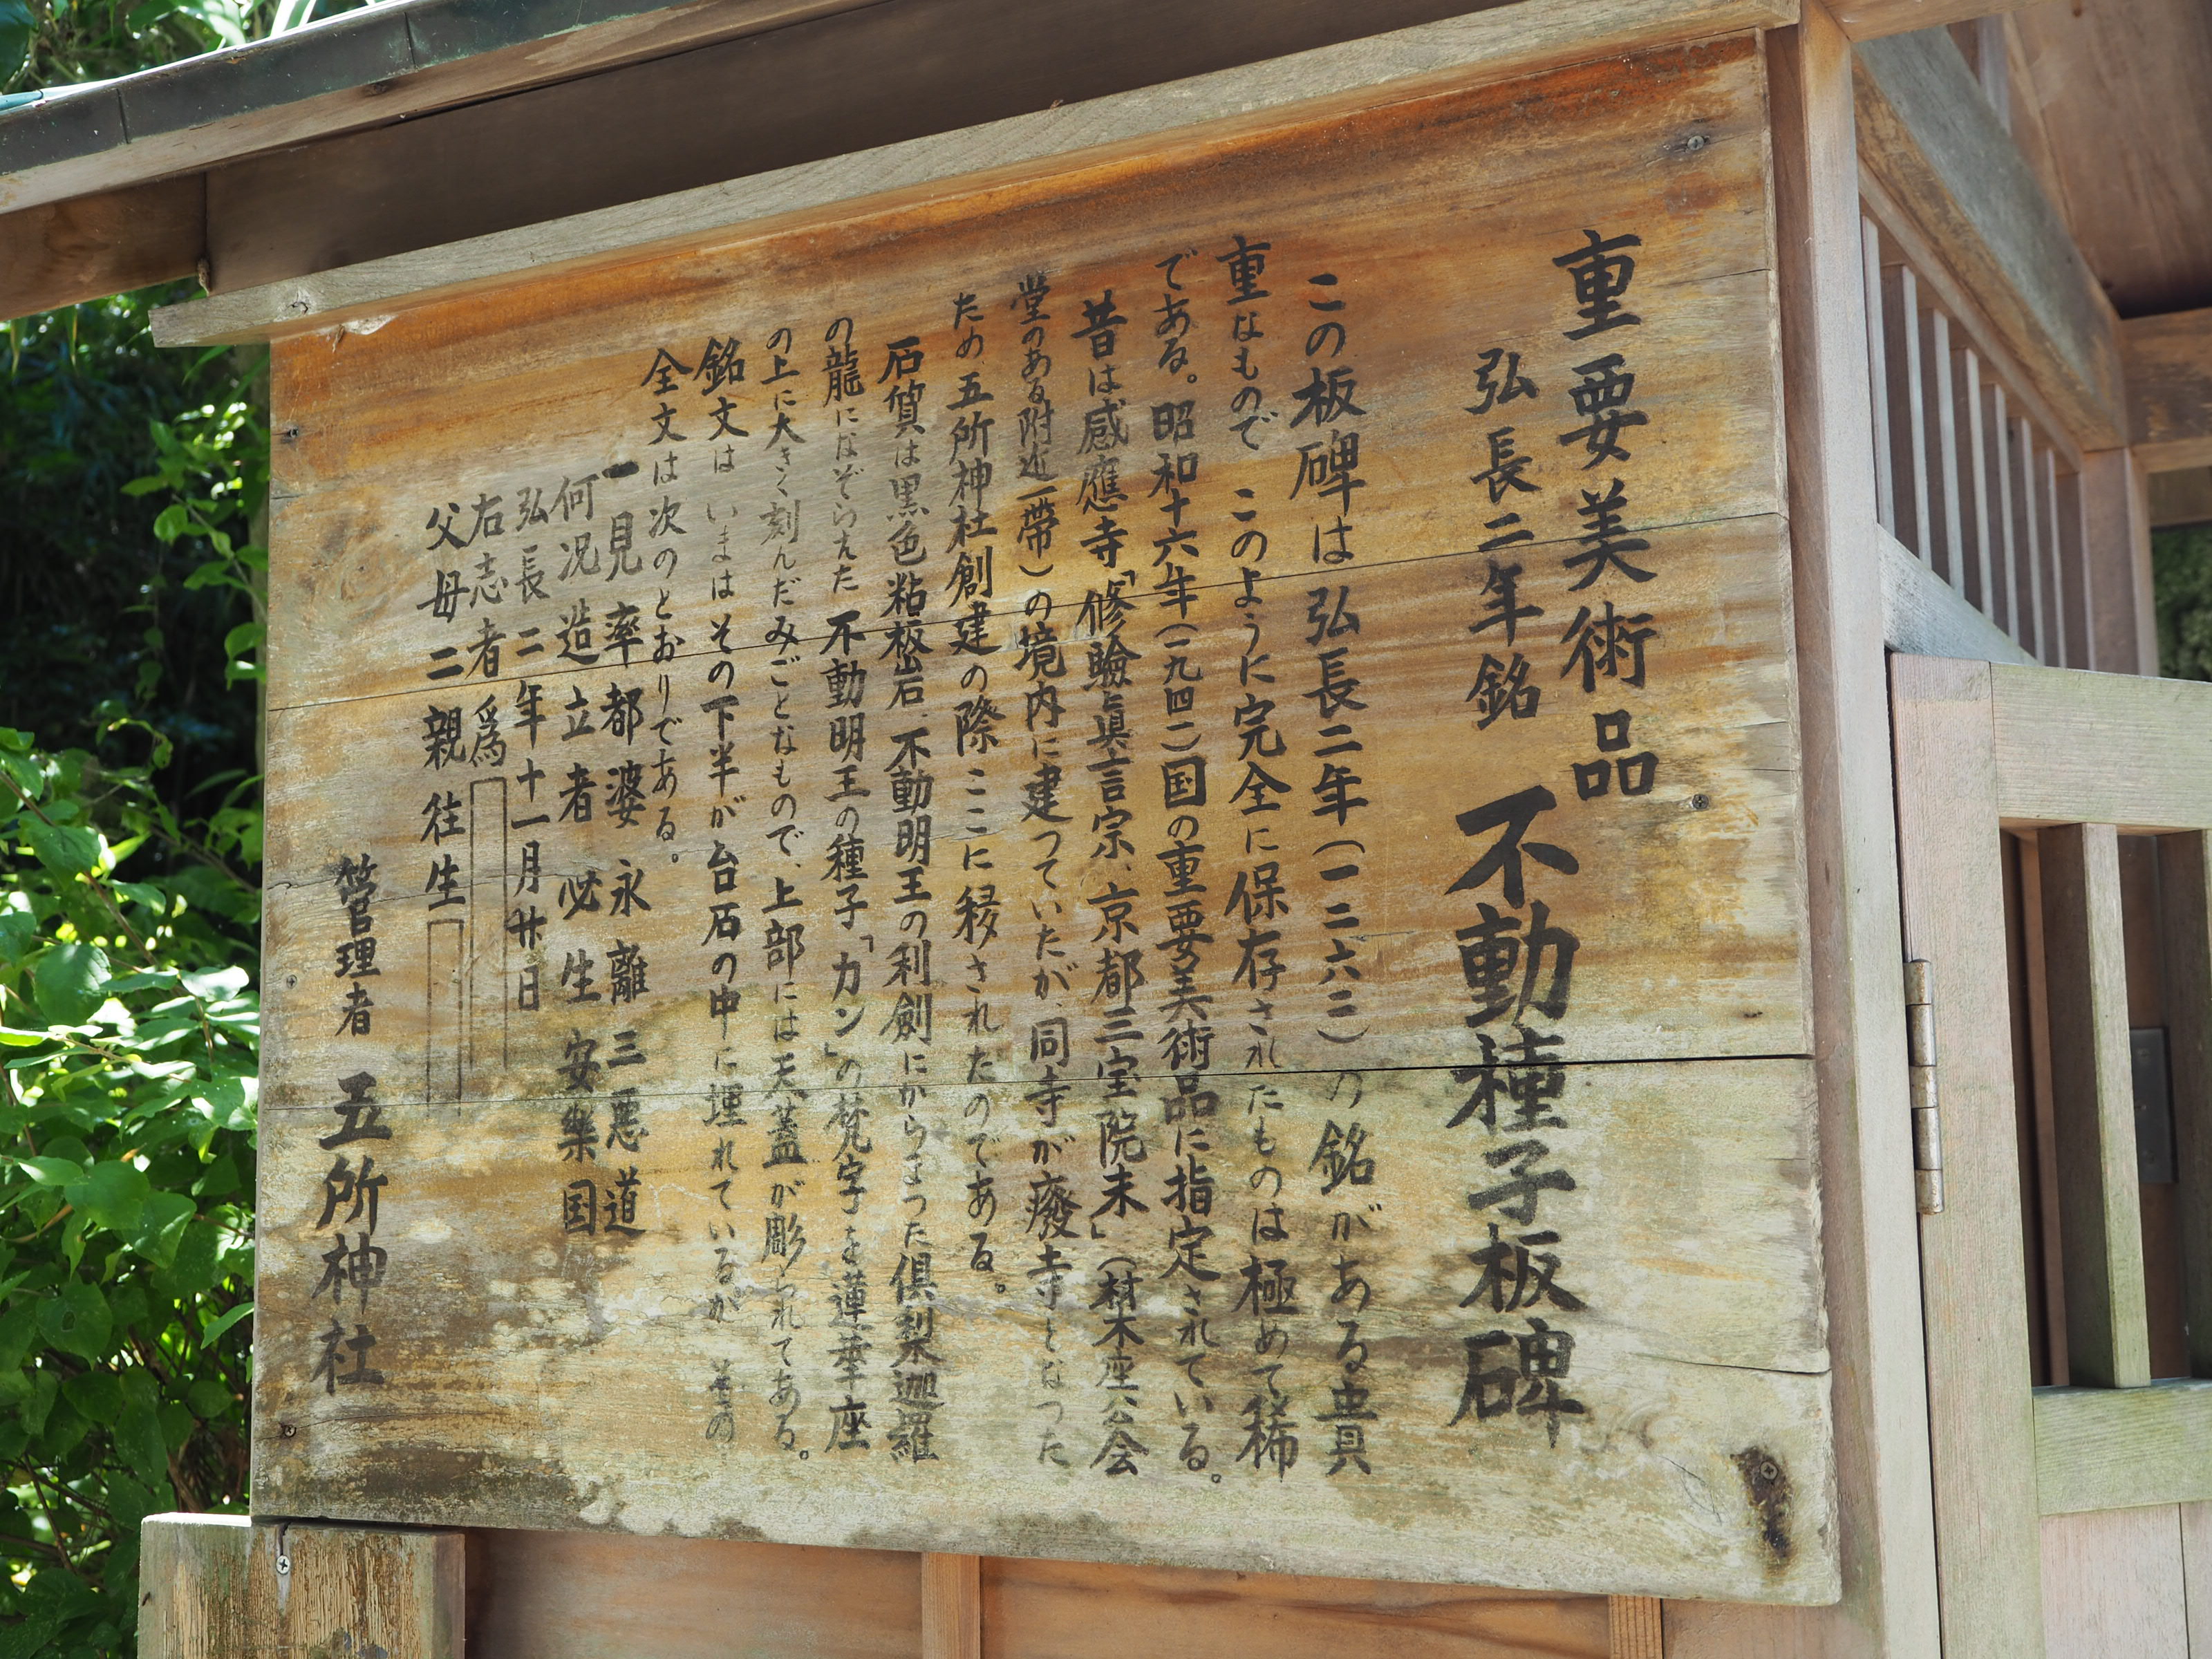 重要美術品
弘長二年銘 不動種子板碑
この板碑は弘長二年(一二六二)の銘がある貴
重なもので このように完全に保存されたものは極めて稀
である。昭和十六年(一九四一)国の重要美術品に指定されている。
昔は感應寺「修驗真言宗、京都三宝院末」(材木座公会
堂のある附近一帯)の境内に建っていたが、同寺が廢寺となった
ため、五所神社創建の際ここに移されたのである。
石質は黒色粘板岩、不動明王の利劍にからまった倶梨迦羅
の龍になぞらえた不動明王の種子「カン」の梵字を蓮華座
の上に大きく刻んだみごとなもので、上部には天蓋が彫られてある。
銘文は いまはその下半が台石の中に埋れているが その
全文は次のとおりである。
一見率都婆永離三悪道
何况造立者必生安樂国
弘長二年十一月廿日
右志者爲
父母二親往生
管理者 五所神社